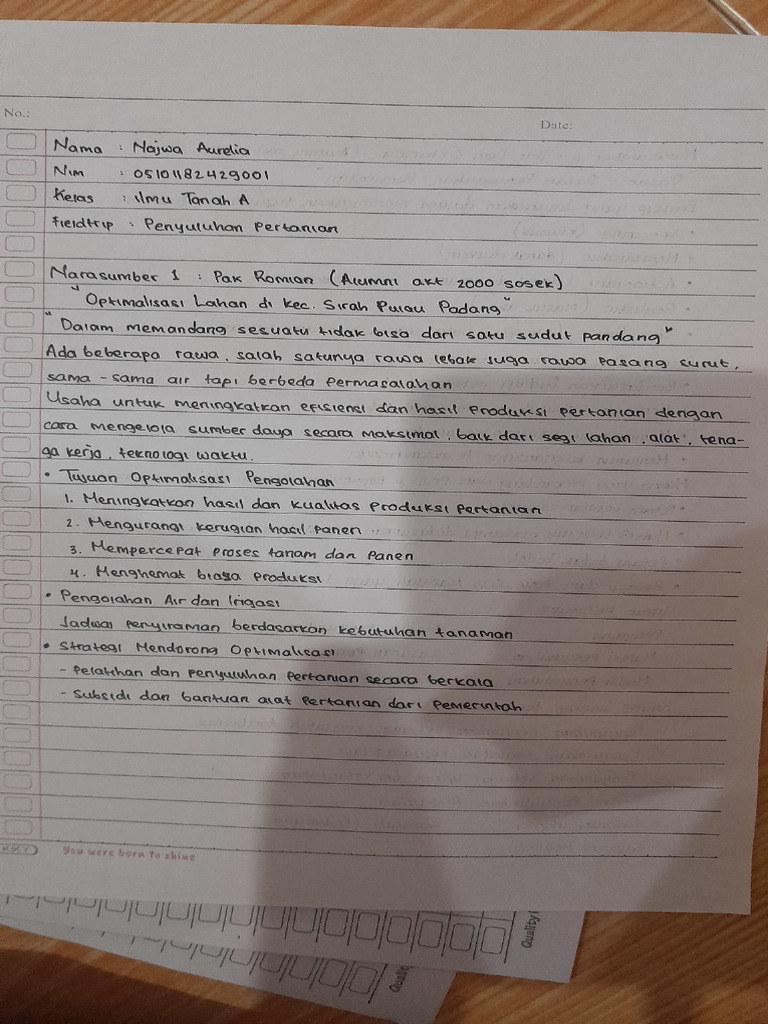 No.:
Date:
Nama : Najwa Aurelia
Nim : 05101182429001
Kelas : Ilmu Tanah A
Fieldtrip : Penyuluhan Pertanian
Narasumber 1 : Pak Romian (Alumni akt 2000 sosek)
"Optimalisasi Lahan di kec. Sirah Pulau Padang"
"Dalam memandang sesuatu tidak bisa dari satu sudut pandang"
Ada beberapa rawa, salah satunya rawa lebak juga rawa pasang surut,
sama-sama air tapi berbeda permasalahan
Usaha untuk meningkatkan efisiensi dan hasil produksi pertanian dengan
cara mengelola sumber daya secara maksimal, baik dari segi lahan, alat, tena-
ga kerja, teknologi waktu.
• Tujuan Optimalisasi Pengolahan
1. Meningkatkan hasil dan kualitas produksi pertanian
2. Mengurangi kerugian hasil panen
3. Mempercepat proses tanam dan panen
4. Menghemat biaya produksi
• Pengolahan Air dan Irigasi
Jadwal penyiraman berdasarkan kebutuhan tanaman
• Strategi Mendorong Optimalisasi
- Pelatihan dan penyuluhan pertanian secara berkala
- Subsidi dan bantuan alat pertanian dari pemerintah
KKY
You were born to shine
Quality
Quality